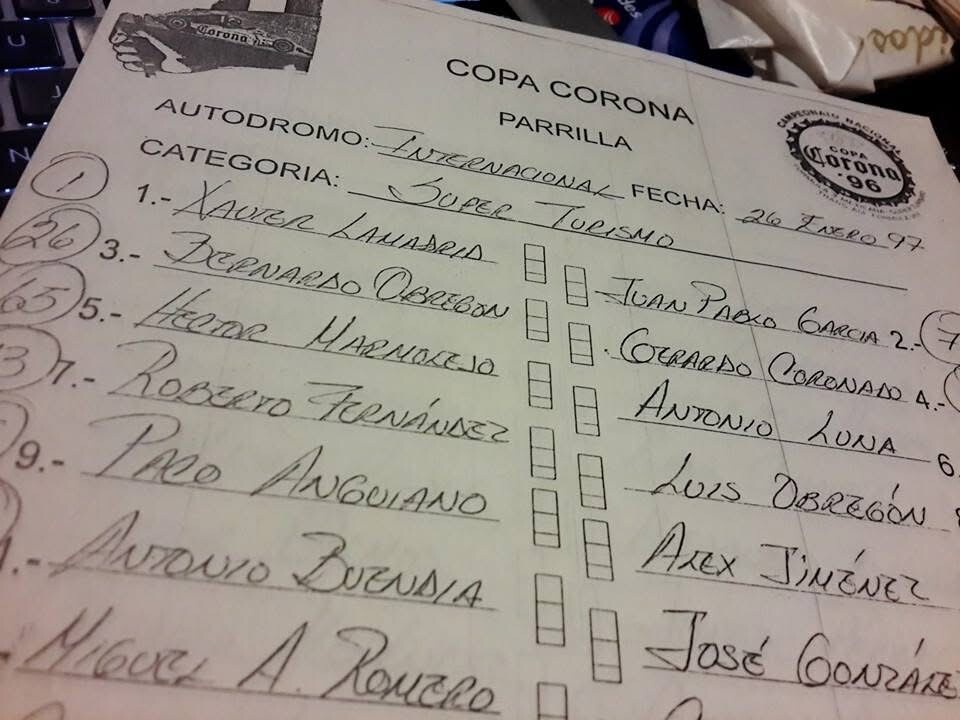 Corona
COPA CORONA
PARRILLA
CAMPEONATO NACIONAL
COPA
Corona
'96
AUTODROMO: INTERNACIONAL FECHA: 26 ENERO 97
CATEGORIA: SUPER TURISMO
1 1.- XAVIER LAMADRID
JUAN PABLO GARCIA 2.- 7
26 3.- BERNARDO OBREGÓN
GERARDO CORONADO 4.-
65 5.- HECTOR MARMOLEJO
ANTONIO LUNA 6.
3 7.- ROBERTO FERNÁNDEZ
LUIS OBREGÓN
9.- PACO ANGUIANO
ALEX JIMÉNEZ
1.- ANTONIO BUENDIA
JOSÉ GONZÁLE
MIGUEL A. ROMERO
U
J
N